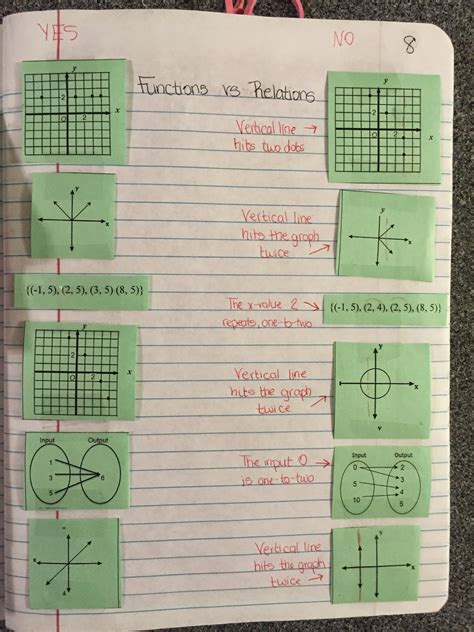 YES
NO
8
Functions vs Relations
y
2
x
0
2
y
2
x
0
2
Vertical line
hits two dots
y
x
Vertical line
hits the graph
twice
y
x
{(-1, 5), (2, 5), (3, 5) (8, 5)}
The x-value 2
repeats, one-to-two
{(-1, 5), (2, 4), (2, 5), (8, 5)}
y
2
x
0
2
Vertical line
hits the graph
twice
y
x
Input Output
1
3
5
6
The input 0
is one-to-two
Input Output
0
5
10
2
3
4
5
x
Vertical line
hits the graph
twice
y
x